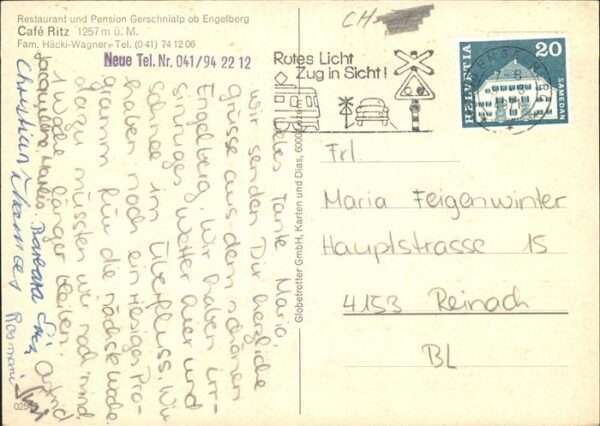 Restaurant und Pension Gerschnialp ob Engelberg
Café Ritz 1257 m ü. M.
Fam. Häcki-Wagner - Tel. (041) 74 12 06
Neue Tel. Nr. 041/94 22 12
Liebes Tante Maria,
wir senden Dir herzliche
Grüsse aus dem schönen
Engelberg. Wir haben irr-
sinniges Wetter hier und
Schnee im Überfluss. Wir
haben noch ein riesiges Pro-
gramm für die nächste Woche
dazu müssten wir noch mind.
1 Woche länger bleiben.
Barbara Astrid
Christian Thomas
Globetrotter GmbH, Karten und Dias, 6000
CH
Rotes Licht
Zug in Sicht!
HELVETIA
20
SAMEDAN
Frl.
Maria Feigenwinter
Hauptstrasse 15
4153 Reinach
BL